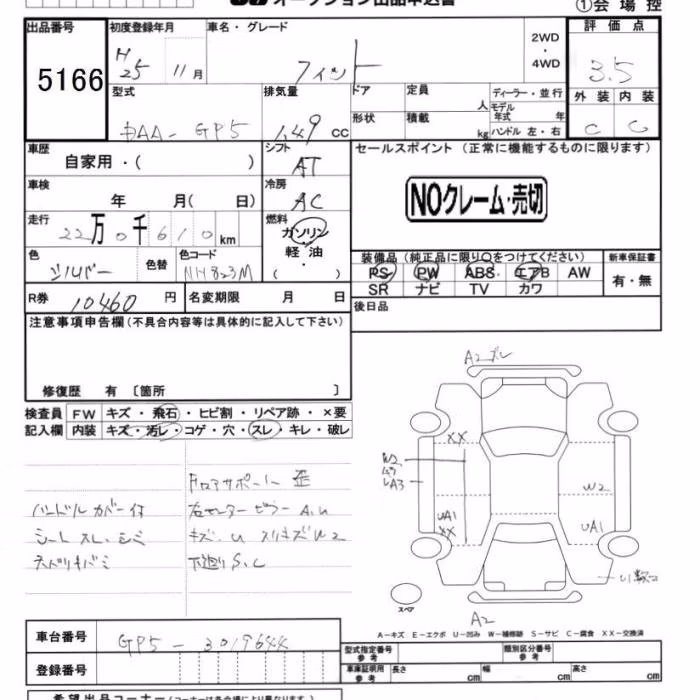 オークション出品申込書
①会場控
出品番号
5166
初度登録年月
H25 11月
車名・グレード
フィット
2WD
・
4WD
評価点
3.5
型式
DAA-GP5
排気量
1.49 cc
ドア
定員 人
ディーラー・並行
モデル年式 年
形状
積載 kg
ハンドル 左・右
外装 内装
C C
車歴
自家用・( )
シフト
AT
セールスポイント (正常に機能するものに限ります)
NOクレーム・売切
車検
年 月( 日)
冷房
AC
走行
22万0千610km
燃料
ガソリン
軽・油
( )
色
シルバー
色替
色コード
NH823M
装備品(純正品に限り○をつけてください)
PS PW ABS エアB AW
SR ナビ TV カワ
新車保証書
有・無
R券 10460円
名変期限 月 日
後日品
注意事項申告欄(不具合内容等は具体的に記入して下さい)
修復歴 有 〔箇所 〕
検査員 FW キズ・飛石・ヒビ割・リペア跡・×要
記入欄 内装 キズ・汚レ・コゲ・穴・スレ・キレ・破レ
ハンドルカバー付
シートスレ・シミ
F.ロアサポート歪
右センターピラーA.U
キズ.U スリキズW2
下廻りS.C
A2ズレ
XX
W2
ムラ
LA3
UA1
XX
W2
UA1
A2
スペア
A-キズ E-エクボ U-凹み W-補修跡 S-サビ C-腐食 XX-交換済
車台番号
GP5-3019644
登録番号
型式指定番号
参考
類別区分番号
参考
車庫証明用
参考
長さ cm 幅 cm 高さ cm
希望出品コーナー(コーナーは各会場により異なります。)